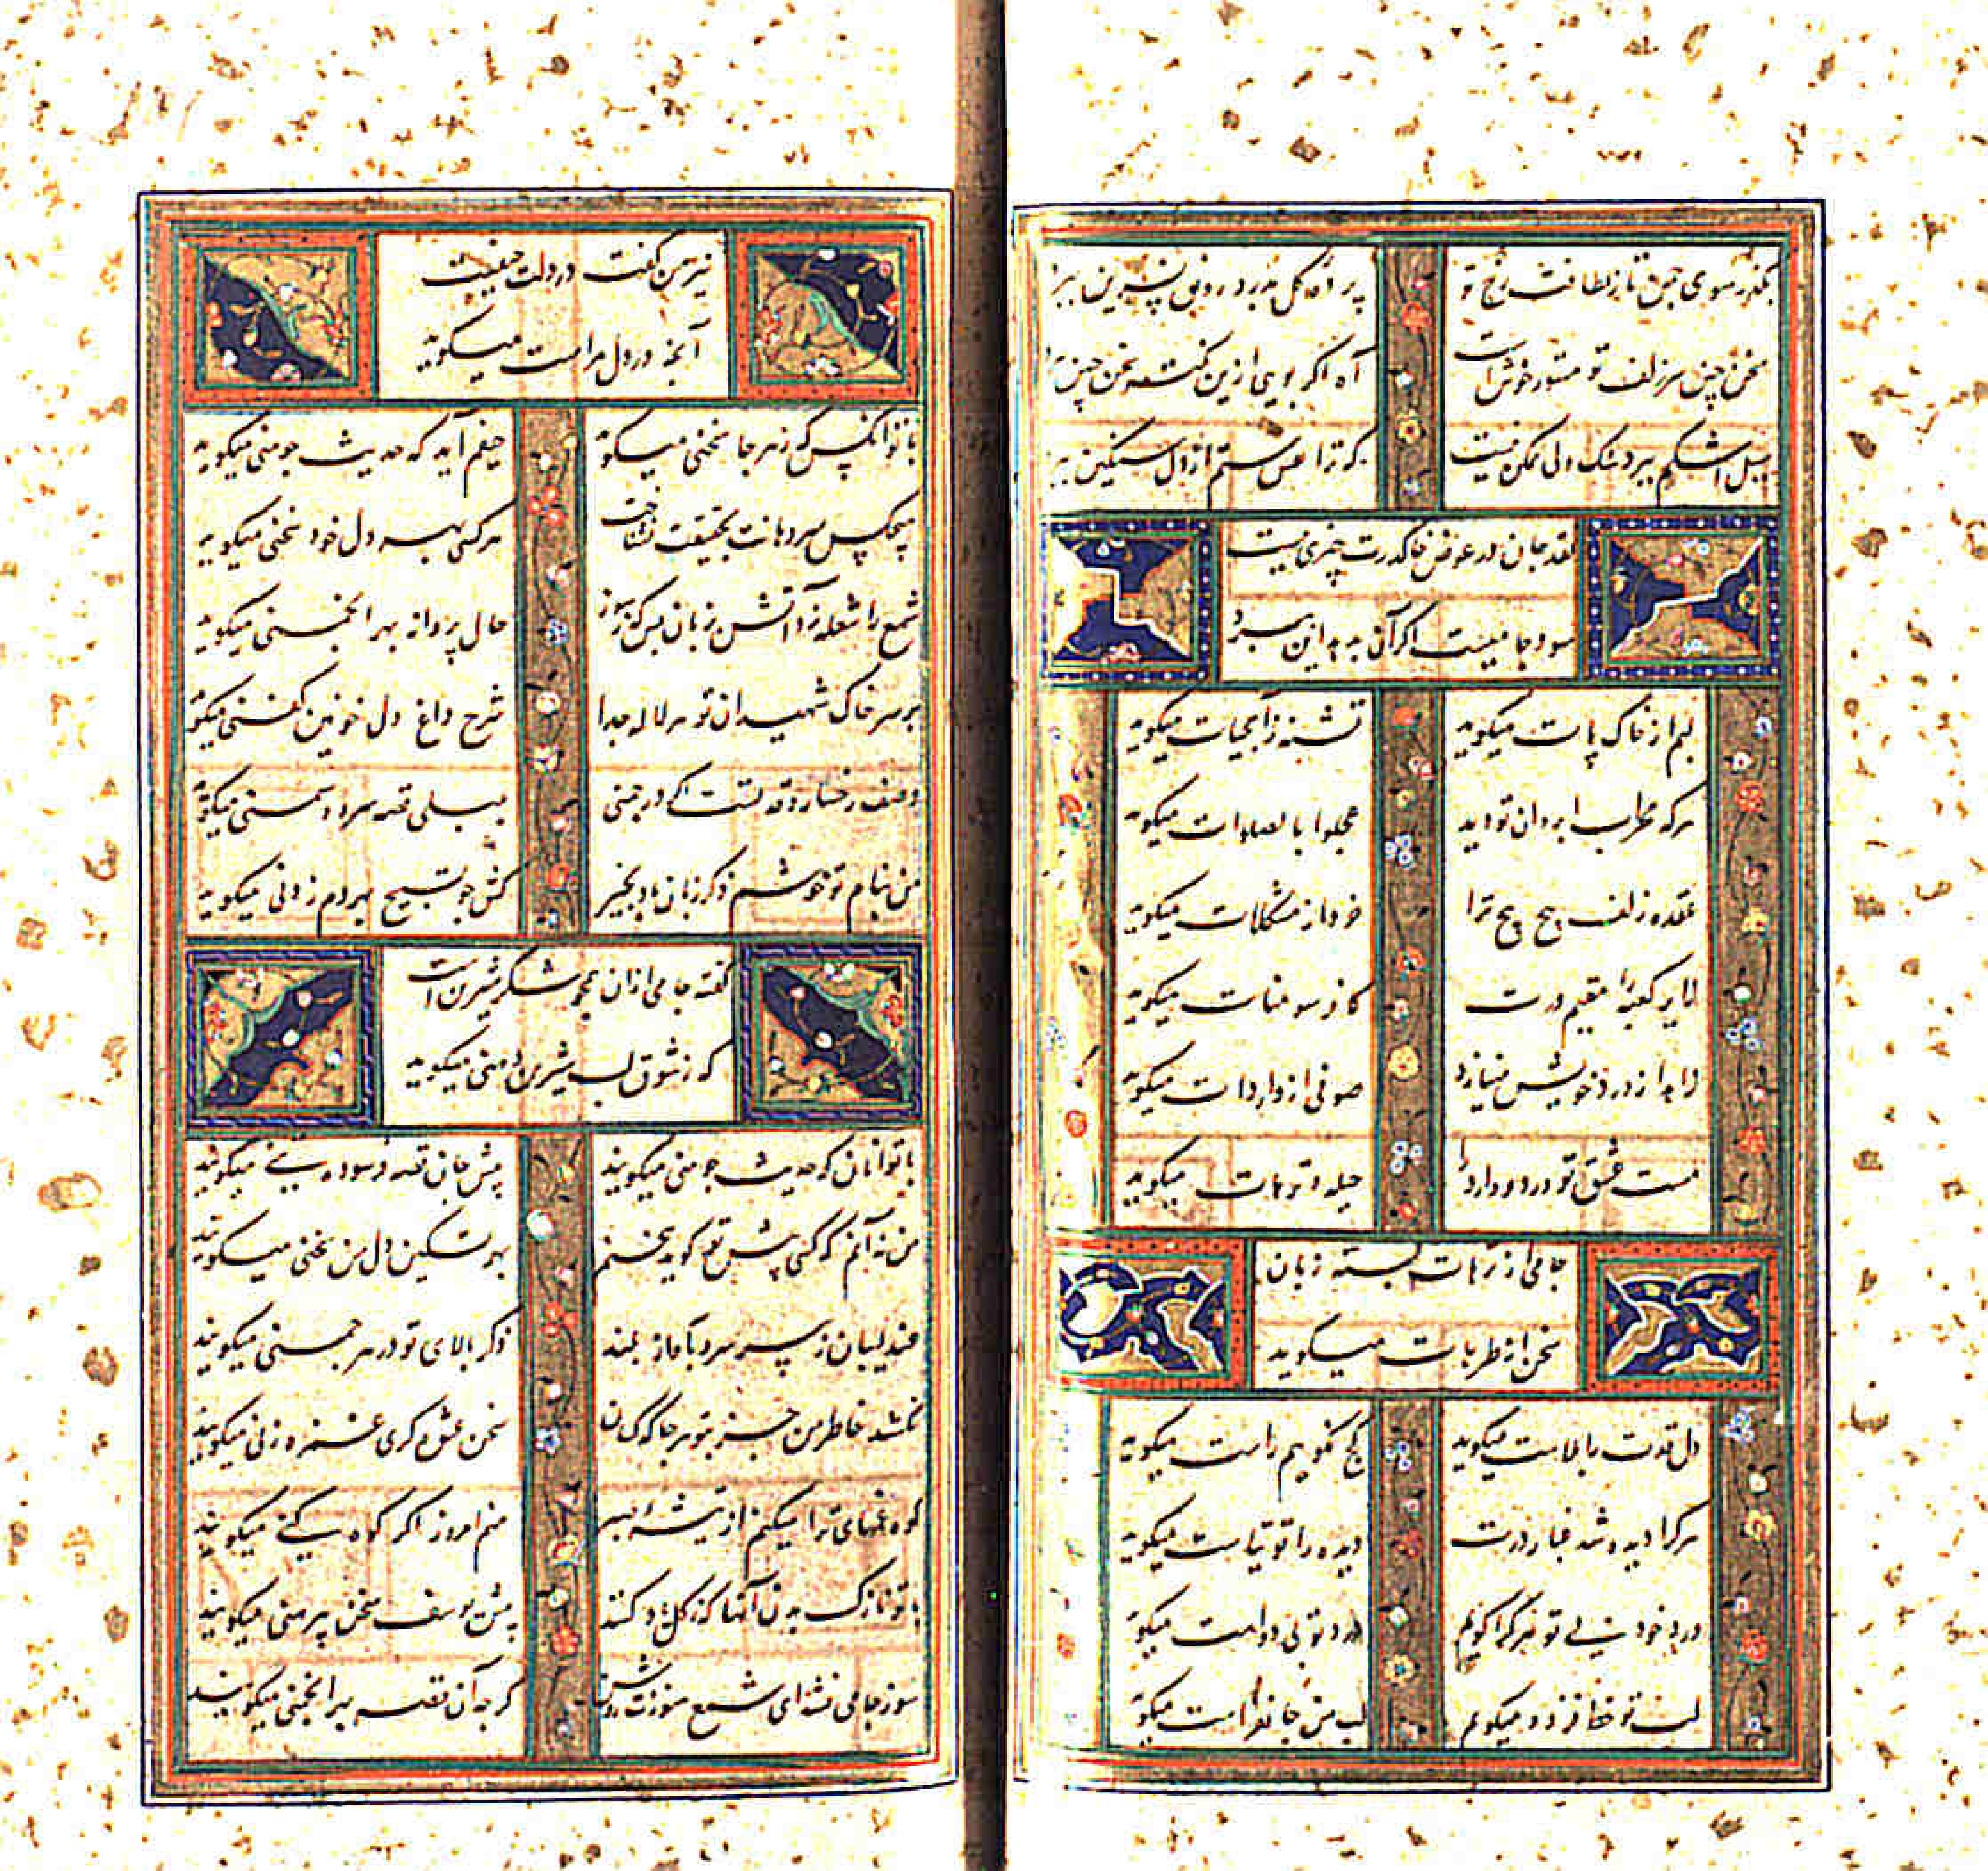 بگذر سوی چمن تا ز لطافت رخ تو
پرده گل بدرد رونق نسرین ببرد
سخن چین سر زلف تو مشهور خوش است
آه اگر بویی ازین سخن چین ببرد
سیل اشکم ببرد سنگ ولی ممکن نیست
که ترا ستم از دل سنگین ببرد
نقد جان در عوض خاک درت چیزی نیست
سود جامیست اگر آن بدهد این ببرد
لبم از خاک پات میگوید
تشنه ز آبحیات میگوید
هر که محراب ابروان تو دید
عجلوا بالصلوات میگوید
عقده زلف پیچ پیچ ترا
خرد از مشکلات میگوید
زایر کعبه را مقیم درت
کافر سومنات میگوید
زاهد از درد خویش مینازد
صوفی از واردات میگوید
مست عشق تو درد و دارد را
حیله و ترهات میگوید
جامی از زهات بسته زبان
سخن از طربات میگوید
دل قدت را بلاست میگوید
کج نگویم راست میگوید
هر کرا دیده شد غبار درت
دیده را توتیاست میگوید
درد خود بی تو هر کرا گویم
درد تو بی دواست میگوید
لب تو خط فزود میگویم
لب من جانفزاست میگوید
نیز من گفت در دلت جفیست
آنچه در دل مراست میگوید
با تو آنکس که ز هر جا سخنی میگوید
حیفم آید که حدیث چو منی میگوید
هیچکس سر دهانت بحقیقت نشناخت
هر کسی بهر دل خود سخنی میگوید
شمع را شعله زد آتش ز زبان بس که بسوز
حال پروانه بهر انجمنی میگوید
بر سر خاک شهیدان تو هر لاله جدا
شرح داغ دل خونین کفنی میگوید
وصف رخسار و قد تست که در چمنی
بلبلی قصه سرو و سمنی میگوید
من بنام تو خوشم ذکر زبان باد بخیر
کش چو تسبیح بهر دم زدنی میگوید
گفته جامی از آن همچو شکر شیرین است
که ز شوق لب شیرین دهنی میگوید
با تو آنان که حدیث چو منی میگویند
پیش جان قصه فرسوده تنی میگویند
من نه آنم که کسی پیش تو گوید سخنم
بهر تسکین دل من سخنی میگویند
عندلیبان ز سر سرو بآواز بلند
ذکر بالای تو در هر چمنی میگویند
نکشد خاطر من جز بتو هر جا که کسان
سخن عشوه گری غمزه زنی میگویند
کوه غمهای ترا میکنم از تیشه صبر
منم امروز اگر کوه کنی میگویند
با تو نازک بدن آنها که ز گل یاد کنند
پیش یوسف سخن پیرهنی میگویند
سوز جامی نشد ای شمع هنوزت روشن
گرچه آن قصه بهر انجمنی میگویند